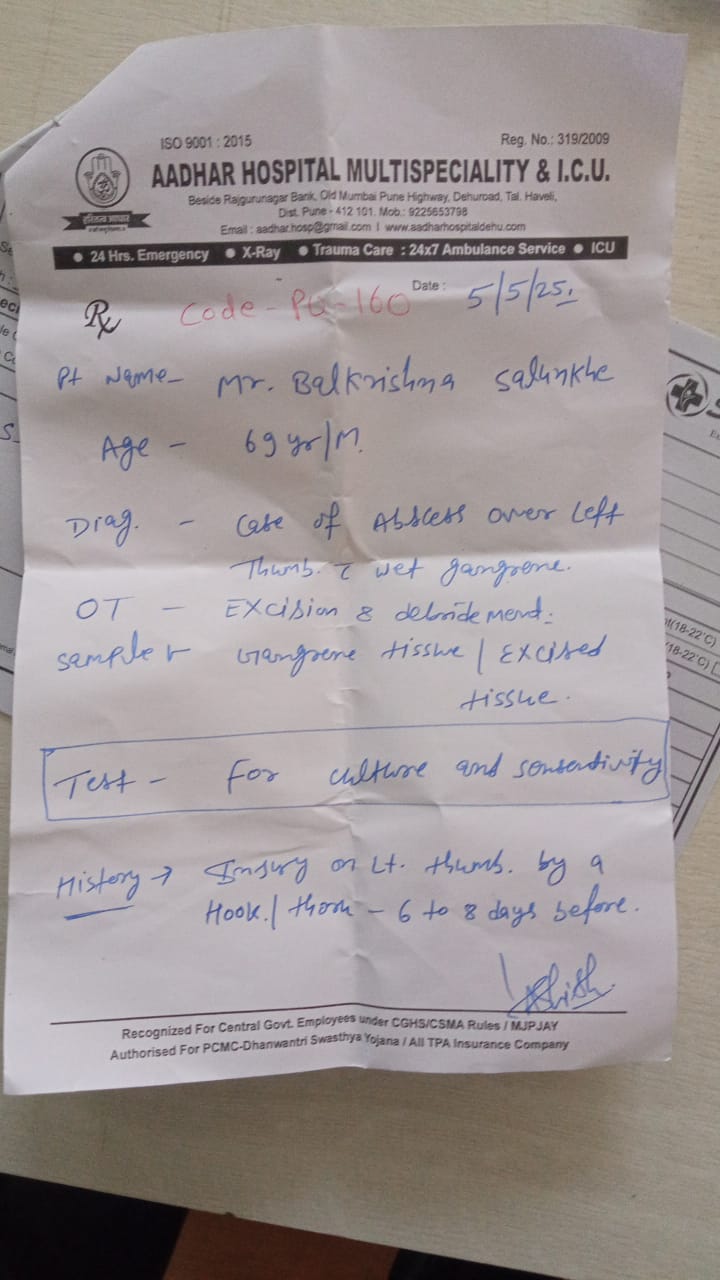 ISO 9001 : 2015
Reg. No.: 319/2009
AADHAR HOSPITAL MULTISPECIALITY & I.C.U.
Beside Rajgurunagar Bank, Old Mumbai Pune Highway, Dehuroad, Tal. Haveli,
Dist. Pune - 412 101. Mob.: 9225653798
Email : aadhar.hosp@gmail.com | www.aadharhospitaldehu.com
• 24 Hrs. Emergency • X-Ray • Trauma Care : 24x7 Ambulance Service • ICU
Rx Code - PG-160 Date : 5/5/25.
Pt Name - Mr. Balkrishna Salunkhe
Age - 69 yr/M.
Diag. - Case of Abscess over Left
Thumb. c̄ wet gangrene.
OT - Excision & debridement.
Sample Gangrene tissue / Excised
tissue.
Test - For culture and sensentivity
History → Injury on Lt. thumb. by a
Hook./thorn - 6 to 8 days before.
Recognized For Central Govt. Employees under CGHS/CSMA Rules / MJPJAY
Authorised For PCMC-Dhanwantri Swasthya Yojana / All TPA Insurance Company
(18-22°C)
(18-22°C)